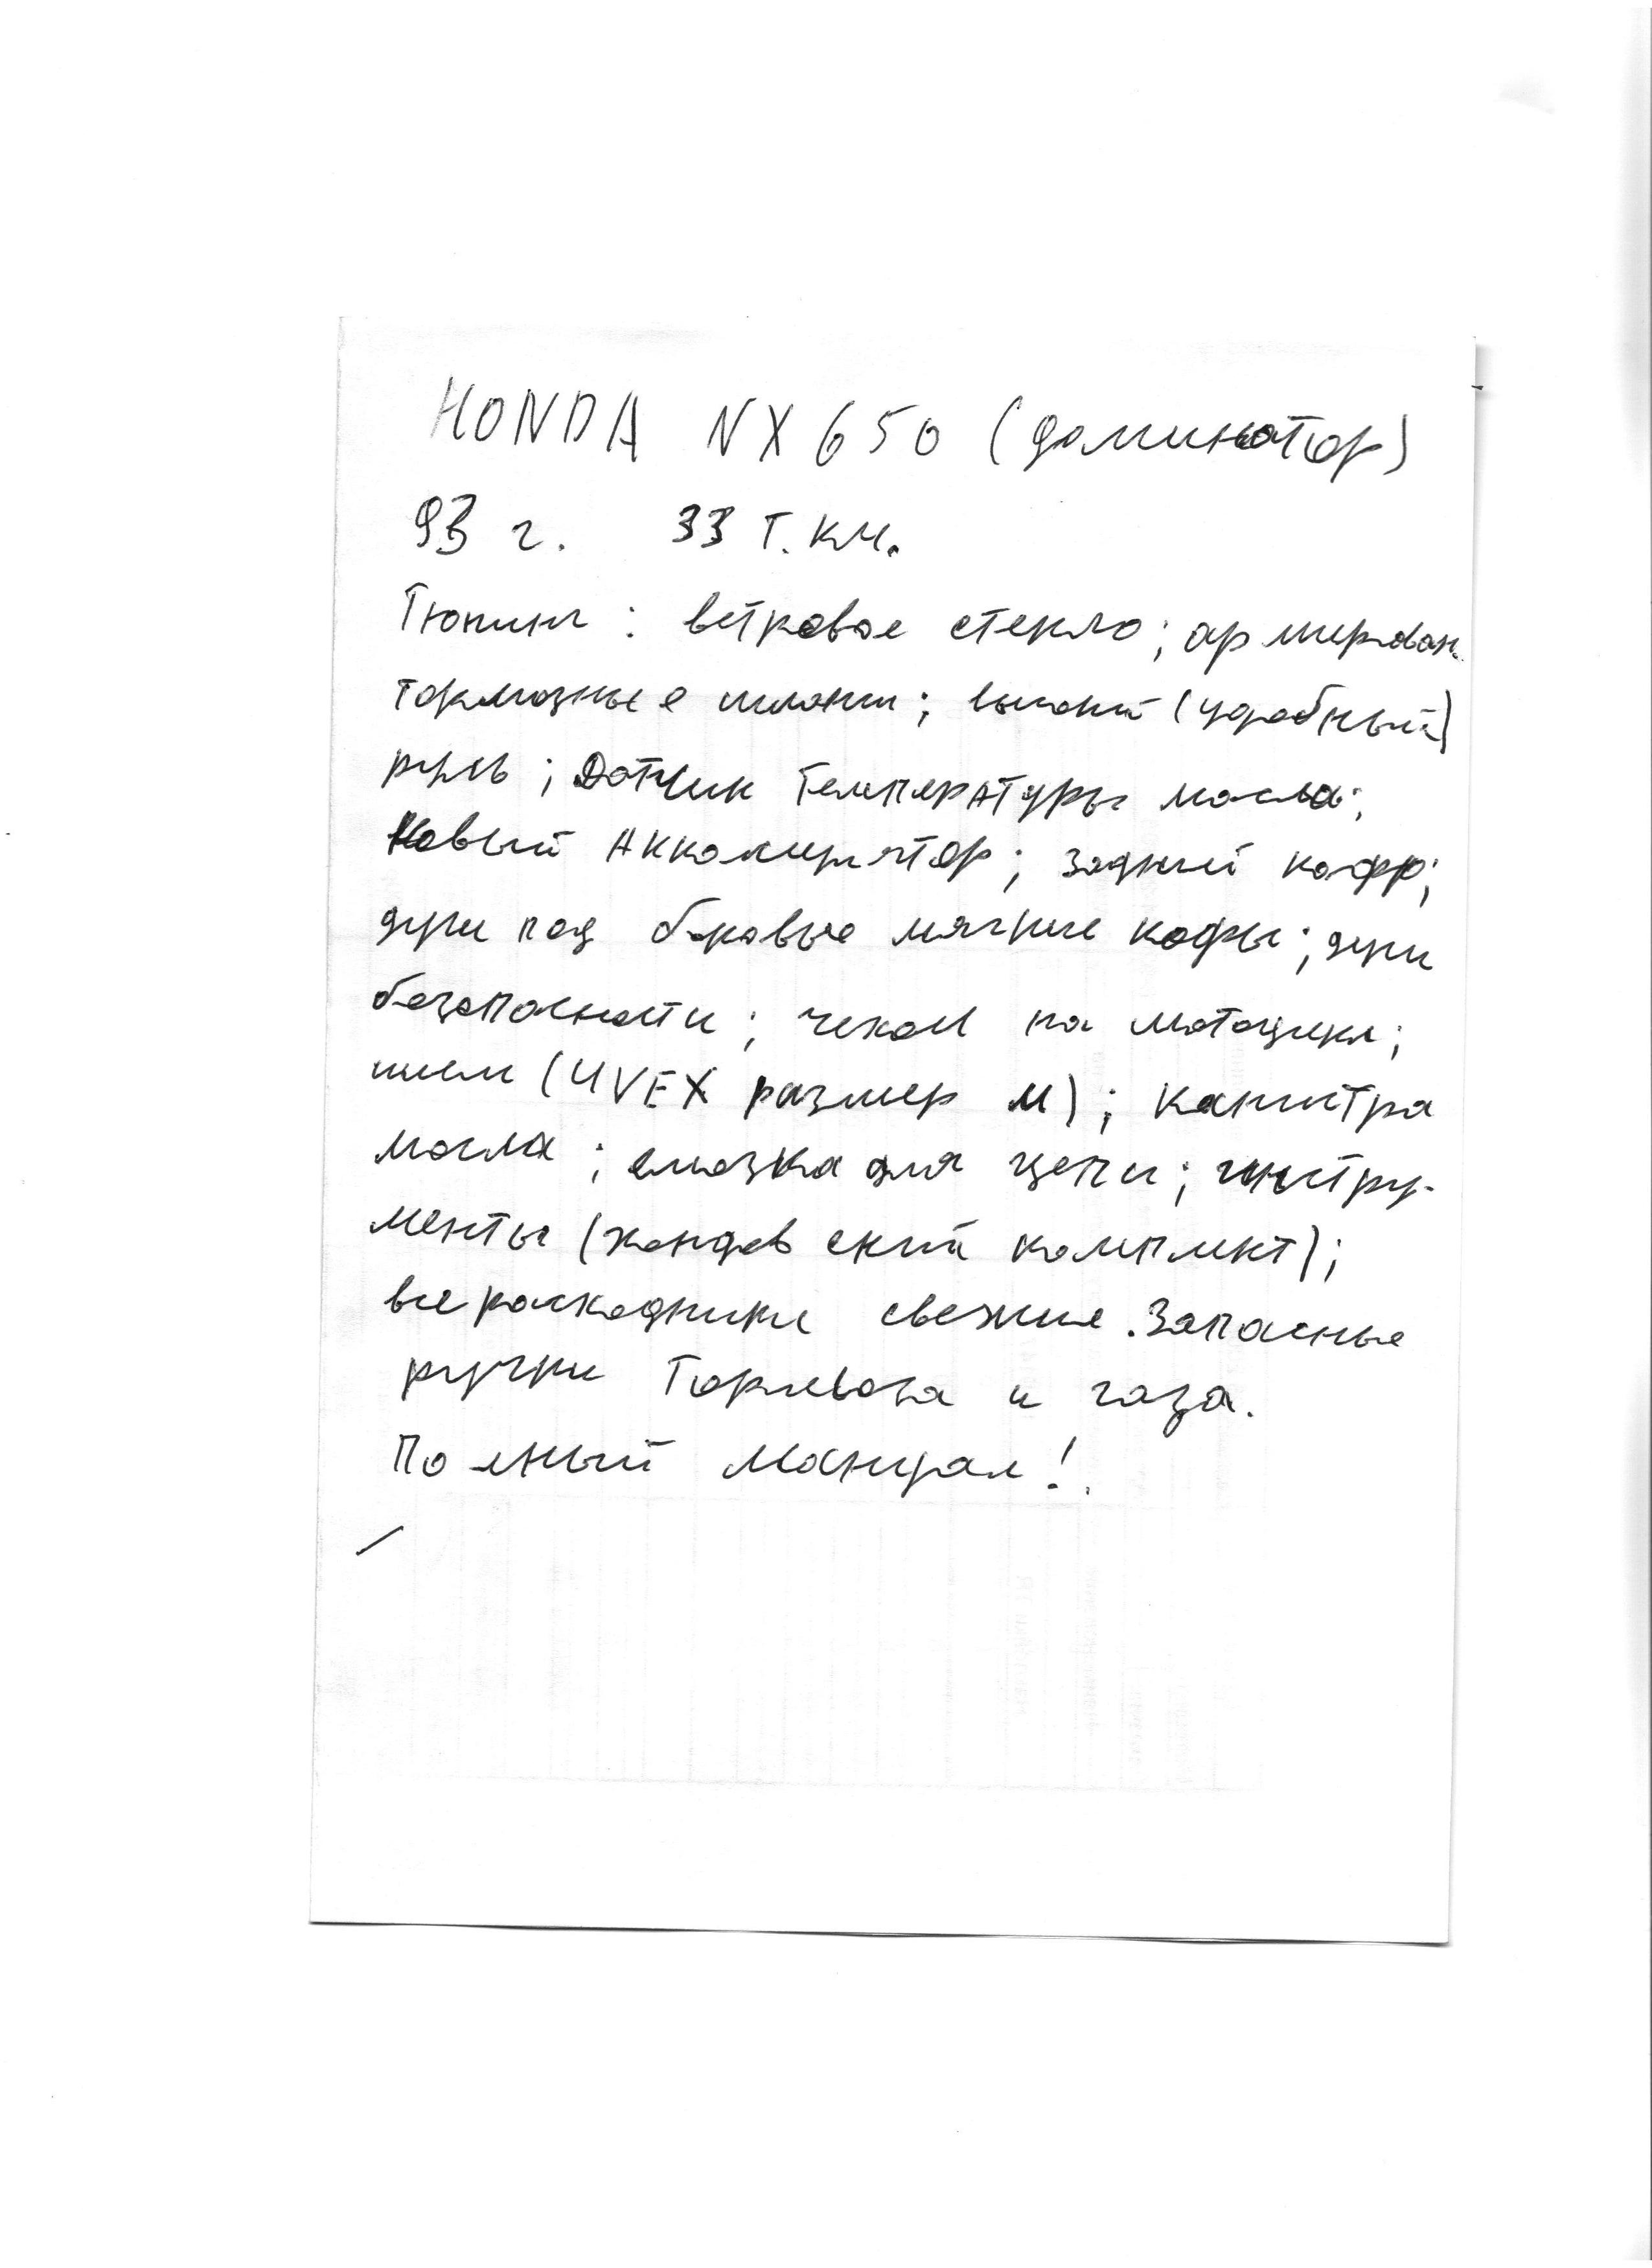 HONDA NX 650 (доминатор)
93 г. 33 т. км.
Тюнинг : ветровое стекло; армирован.
тормозные шланги; высокий (удобный)
руль; Датчик температуры масла;
Новый Аккомулятор; задний кофр;
дуги под боковые мягкие кофры; дуги
безопасности; чехол на мотоцикл;
шлем (UVEX размер м); канистра
масла; смазка для цепи; инстру-
менты (хондовский комплект);
все расходники свежие. Запасные
ручки Тормоза и газа.
Полный мануал!